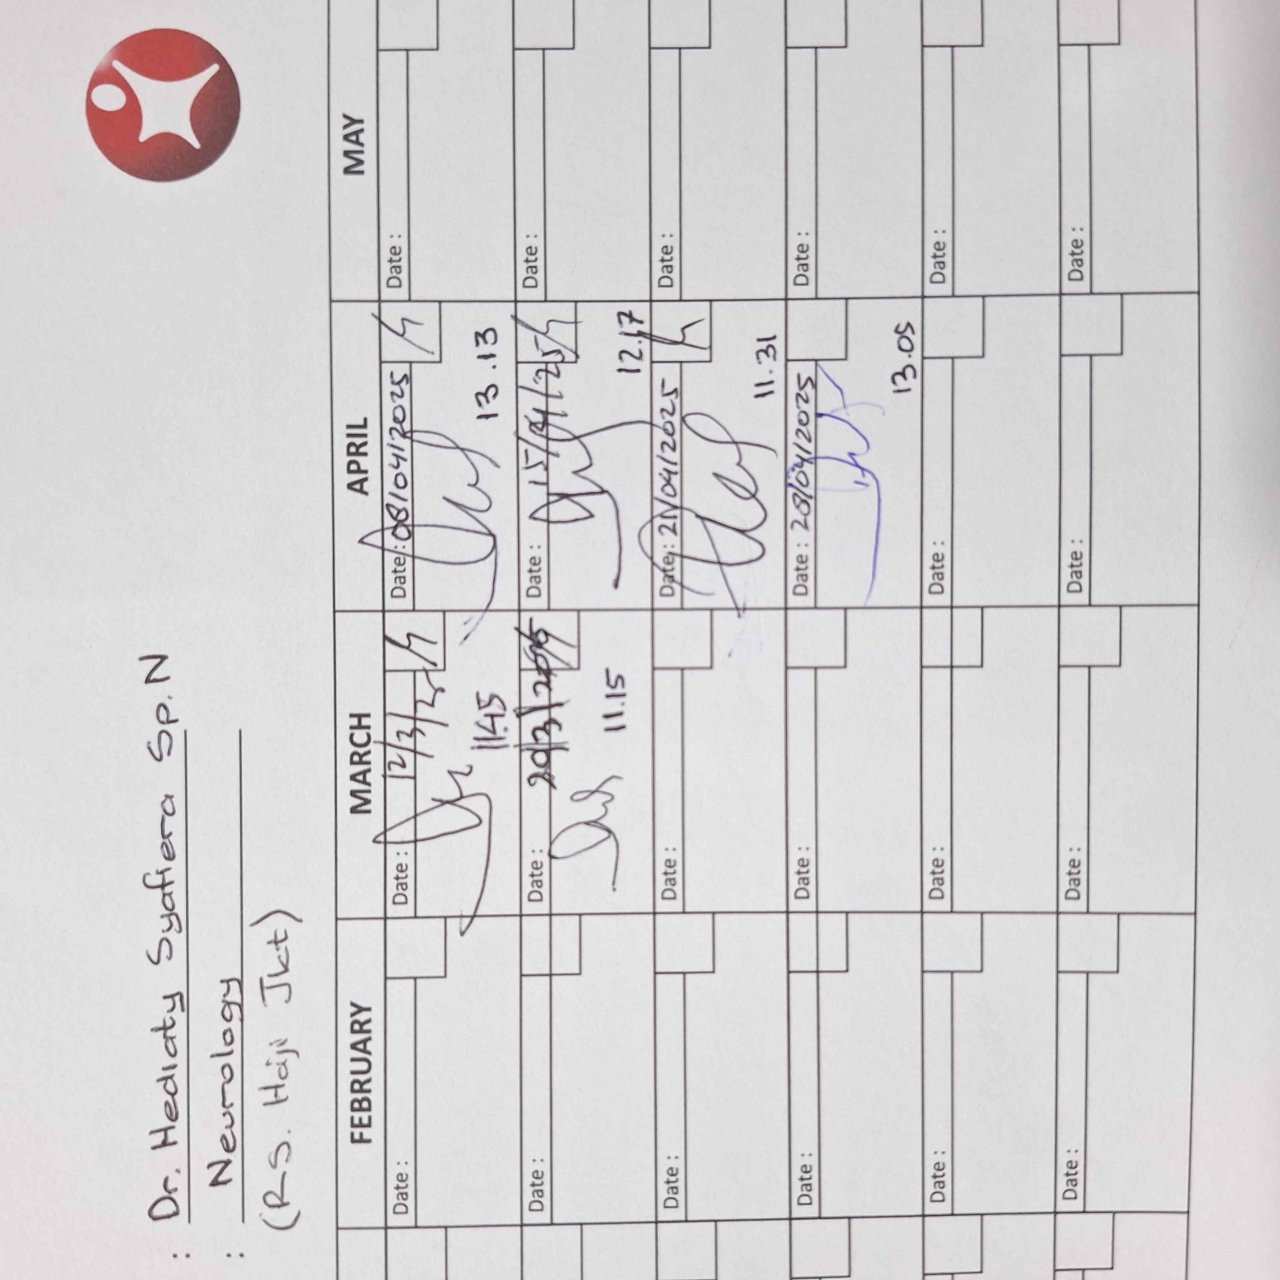 : Dr. Hediaty Syafiera Sp.N
: Neurology
(RS. Haji Jkt)
FEBRUARY MARCH APRIL MAY
Date : Date : 12/3/25 Date : 08/04/2025 Date :
11.45 13.13
Date : Date : 20/3/2025 Date : 15/04/25 Date :
11.15 12.17
Date : Date : Date : 21/04/2025 Date :
11.31
Date : Date : Date : 28/04/2025 Date :
13.05
Date : Date : Date : Date :
Date : Date : Date : Date :